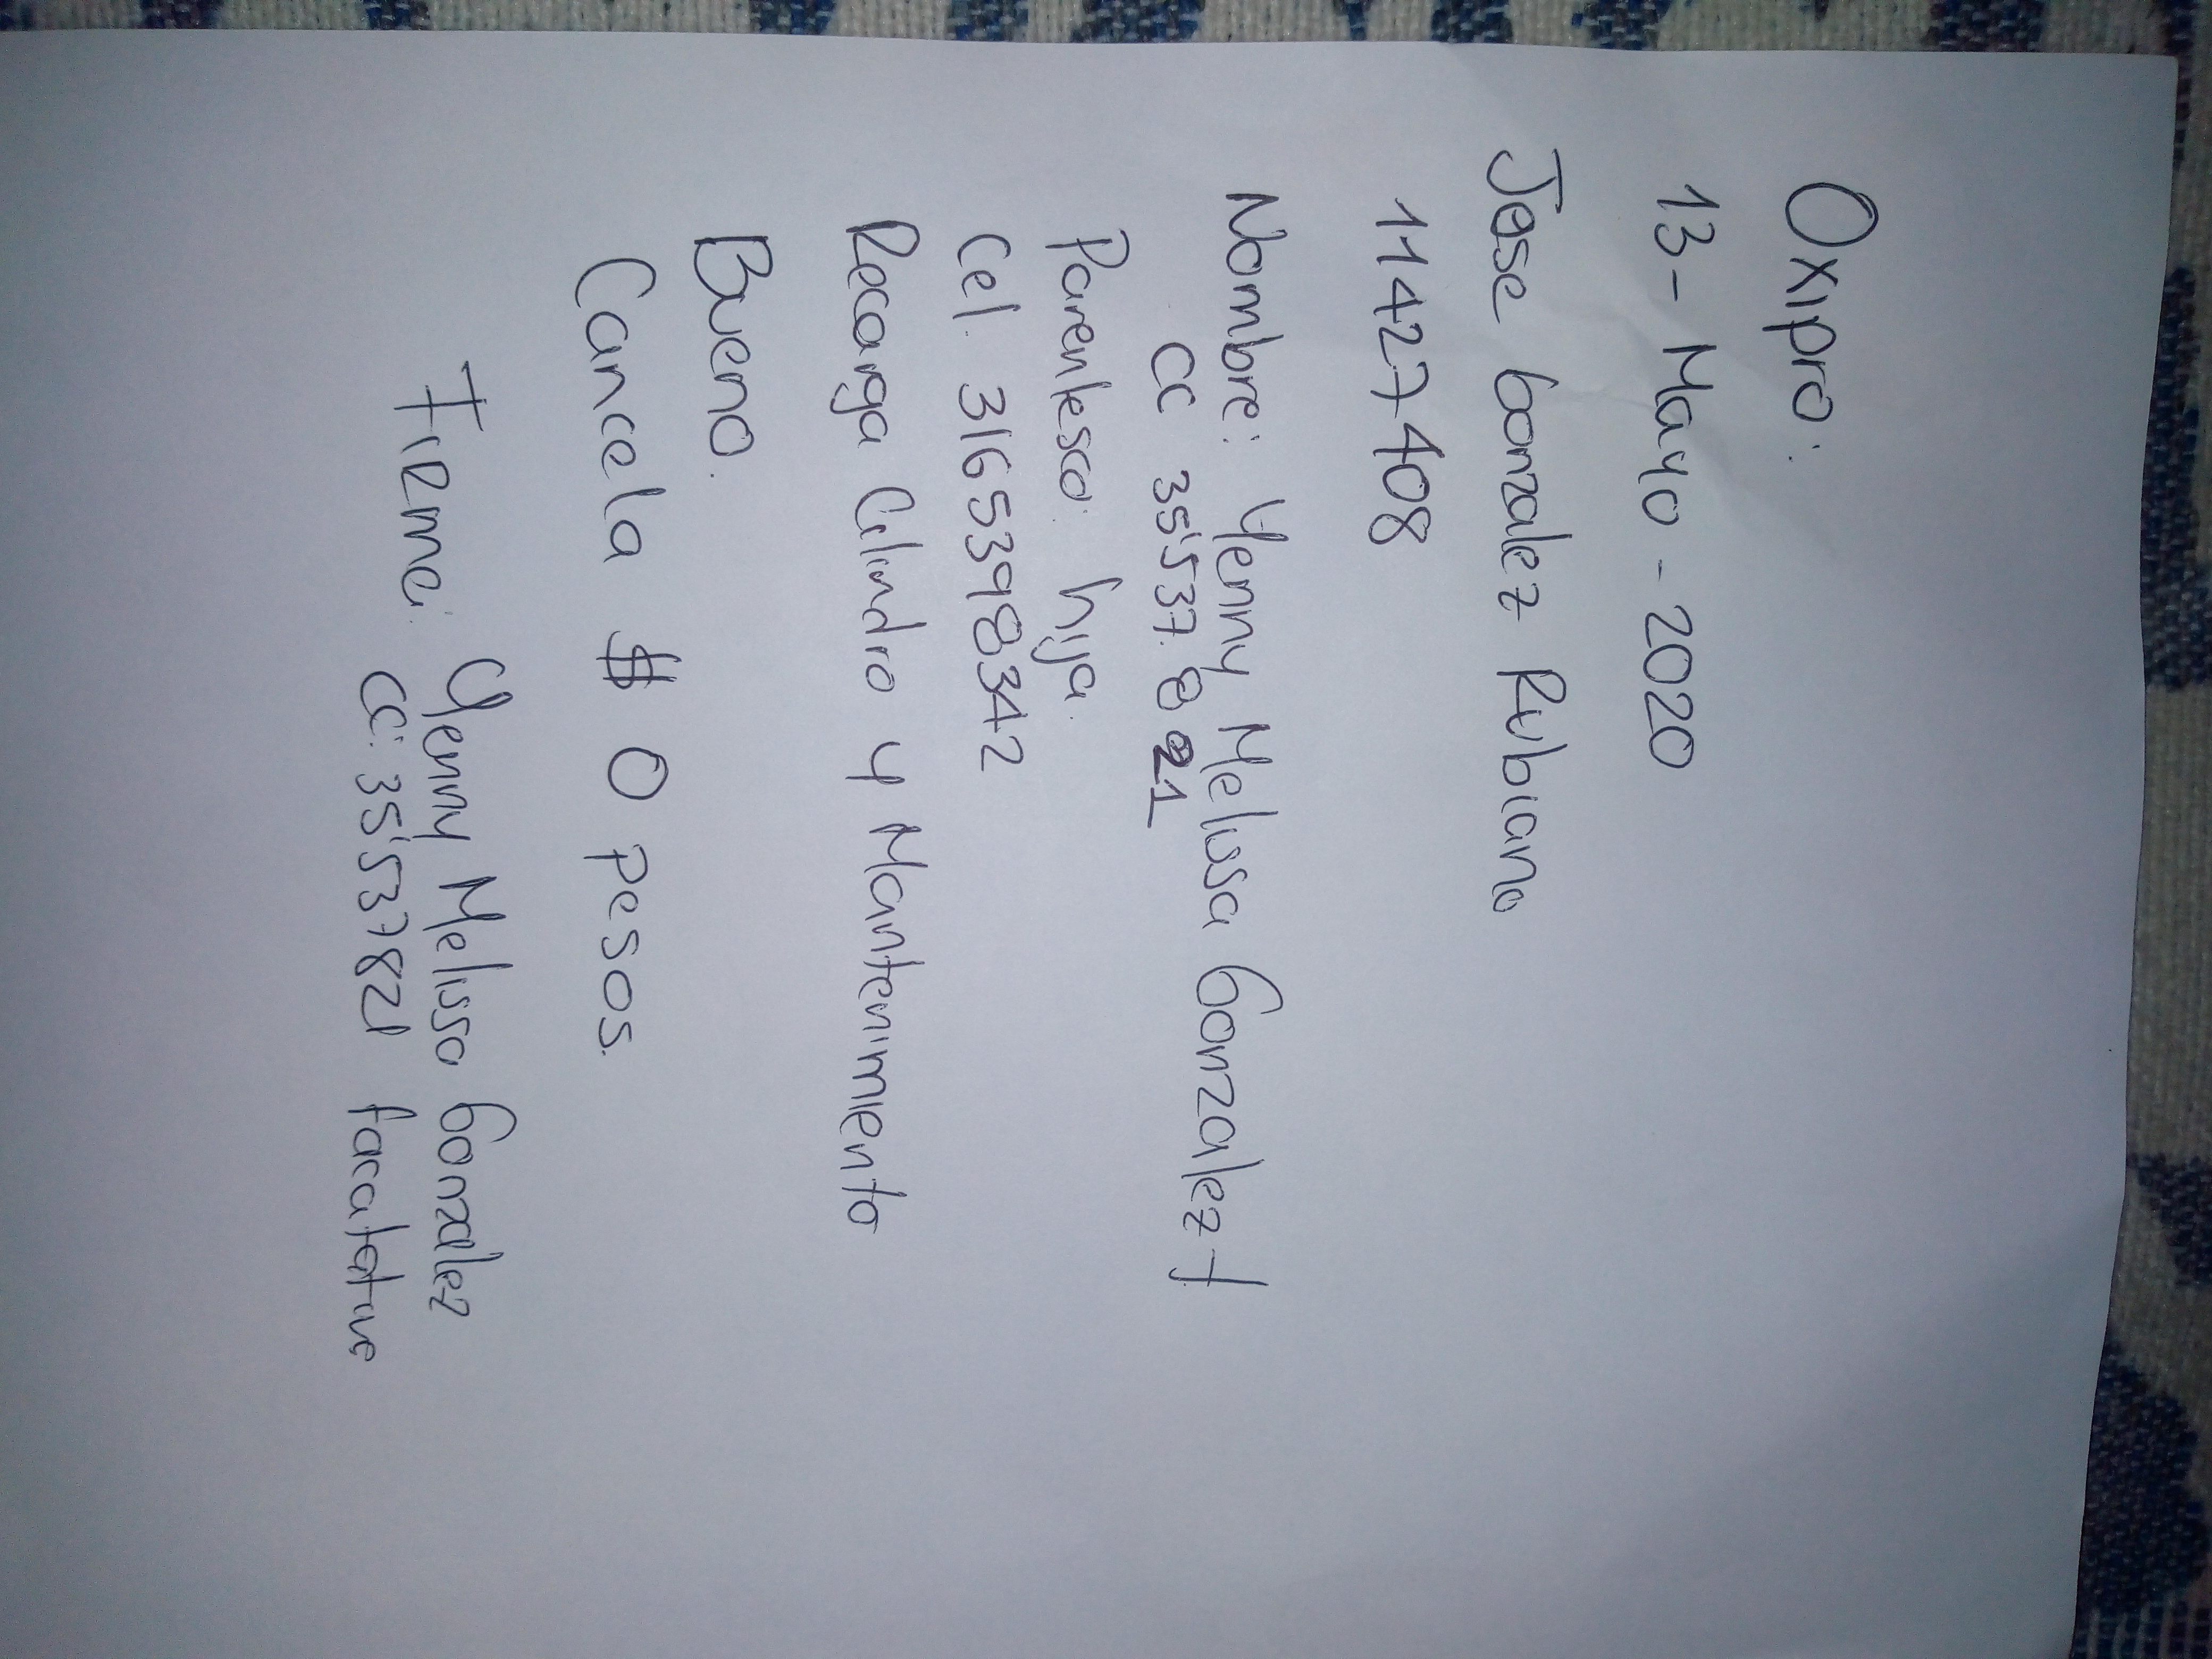 Oxipro:
13-Mayo-2020
Jose Gonzalez Rubiano
11427408
Nombre: Yenny Melissa Gonzalez f
CC 35'537.821
Parentesco: hija.
Cel. 3165398342
Recarga Cilindro y Mantenimiento
Bueno.
Cancela $ 0 pesos.
Firma: Yenny Melissa Gonzalez
CC: 35'537821 facatativa